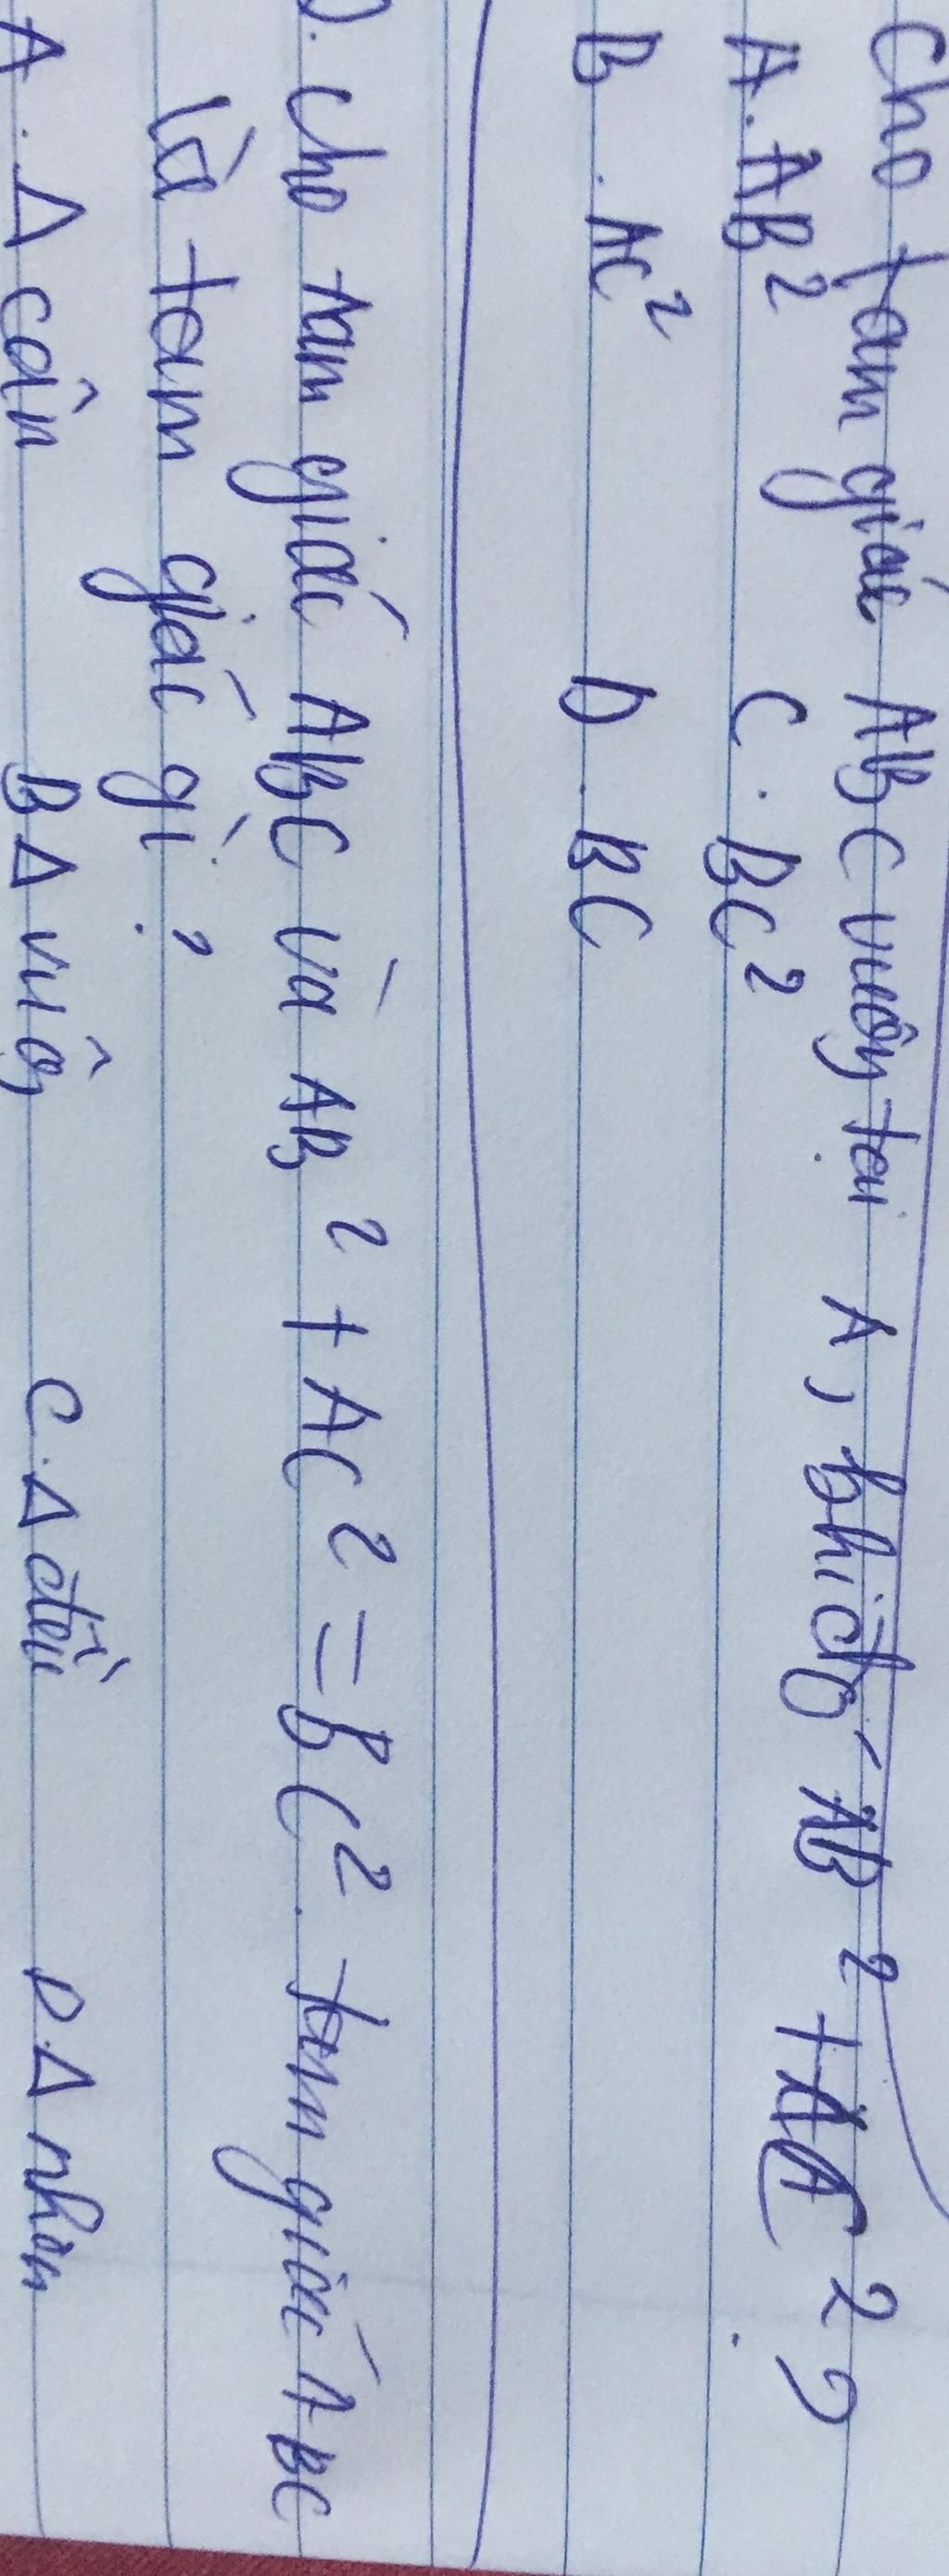 Cho tam giác ABC vuông tại A, khi đó AB² + AC²?
A. AB² C. BC²
B. AC² D. BC
Cho tam giác ABC và AB² + AC² = BC². tam giác ABC
là tam giác gì?
A. Δ cân B Δ vuông C. Δ đều D. Δ nhọn